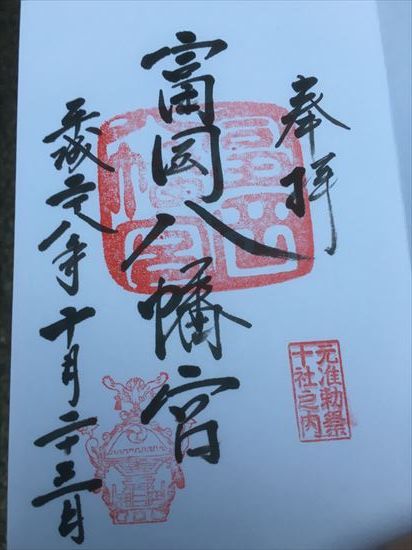 奉拝
元准勅祭
十社之内
富岡八幡宮
平成二十八年十月二十三日